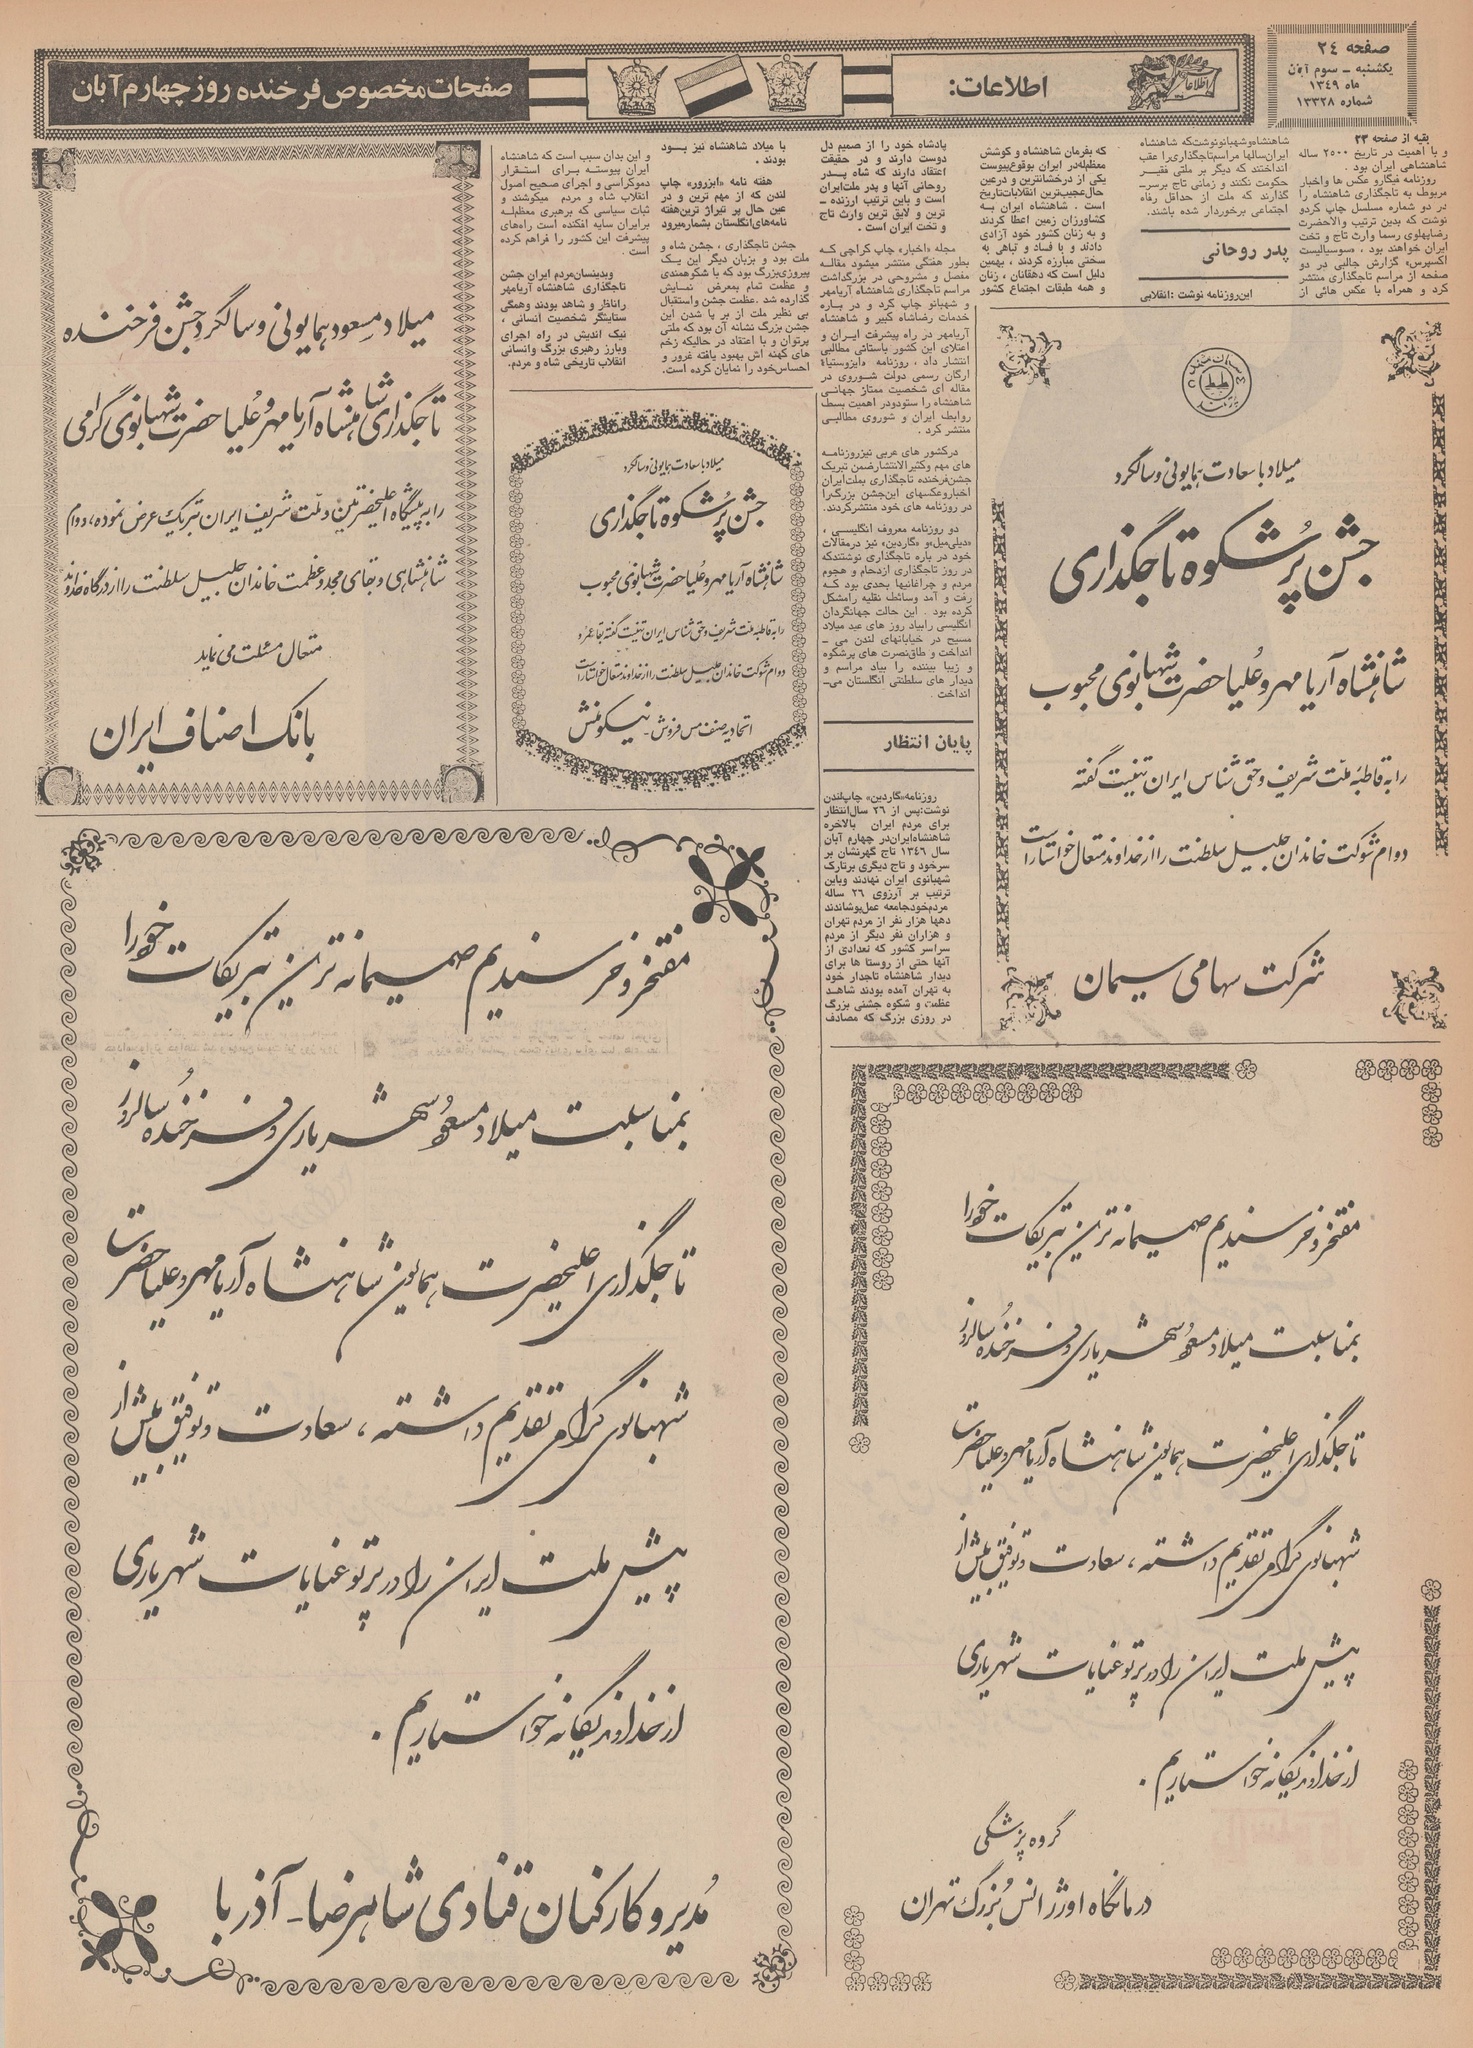 صفحه ۲۴
یکشنبه – سوم آبان
ماه ۱۳۴۹
شماره ۱۳۳۲۸
اطلاعات
اطلاعات:
صفحات مخصوص فرخنده روز چهارم آبان
بقیه از صفحه ۲۳
و با اهمیت در تاریخ ۲۵۰۰ ساله
شاهنشاهی ایران بود .
روزنامه فیگارو عکس ها واخبار
مربوط به تاجگذاری شاهنشاه را
در دو شماره مسلسل چاپ کردو
نوشت که بدین ترتیب والاحضرت
رضاپهلوی رسما وارث تاج و تخت
ایران خواهند بود ، سوسیالیست
اکسپرس» گزارش جالبی در دو
صفحه از مراسم تاجگذاری منتشر
کرد و همراه با عکس هائی از
شاهنشاه‌وشهبانونوشت‌که شاهنشاه
ایران‌سالها مراسم‌تاجگذاری‌را عقب
انداختند که دیگر بر ملتی فقیر
حکومت نکنند و زمانی تاج برسر
گذارند که ملت از حداقل رفاه
اجتماعی برخوردار شده باشند.
پدر روحانی
این‌روزنامه نوشت :انقلابی
که بفرمان شاهنشاه و کوشش
معظم‌له‌در ایران بوقوع‌پیوست
یکی از درخشانترین و درعین
حال‌عجیب‌ترین انقلابات‌تاریخ
است . شاهنشاه ایران به
کشاورزان زمین اعطا کردند
و به زنان کشور خود آزادی
دادند و با فساد و تباهی به
سختی مبارزه کردند ، بهمین
دلیل است که دهقانان ، زنان
و همه طبقات اجتماع کشور
پادشاه خود را از صمیم دل
دوست دارند و در حقیقت
اعتقاد دارند که شاه پدر
روحانی آنها و پدر ملت‌ایران
است و باین ترتیب ارزنده –
ترین و لایق ترین وارث تاج
و تخت ایران است .
مجله «اخبار» چاپ کراچی که
بطور هفتگی منتشر میشود مقاله
مفصل و مشروحی در بزرگداشت
مراسم تاجگذاری شاهنشاه آریامهر
و شهبانو چاپ کرد و در باره
خدمات رضاشاه کبیر و شاهنشاه
آریامهر در راه پیشرفت ایران و
اعتلای این کشور باستانی مطالبی
انتشار داد ، روزنامه «ایزوستیا»
ارگان رسمی دولت شوروی در
مقاله ای شخصیت ممتاز جهانی
شاهنشاه را ستودودر اهمیت بسط
روابط ایران و شوروی مطالبی
منتشر کرد .
درکشور های عربی نیزروزنامه
های مهم وکثیرالانتشارضمن تبریک
جشن‌فرخنده تاجگذاری بملت‌ایران
اخباروعکسهای این‌جشن بزرگ‌را
در روزنامه های خود منتشرکردند.
دو روزنامه معروف انگلیسی ،
«دیلی‌میل»و «گاردین» نیز درمقالات
خود در باره تاجگذاری نوشتندکه
در روز تاجگذاری ازدحام و هجوم
مردم و چراغانیها بحدی بود که
رفت و آمد وسائط نقلیه رامشکل
کرده بود . این حالت جهانگردان
انگلیسی رابیاد روز های عید میلاد
مسیح در خیابانهای لندن می –
انداخت و طاق‌نصرت های پرشکوه
و زیبا بیننده را بیاد مراسم و
دیدار های سلطنتی انگلستان می‌–
انداخت
پایان انتظار
روزنامه«گاردین» چاپ‌لندن
نوشت:پس از ۲۶ سال‌انتظار
برای مردم ایران بالاخره
شاهنشاه‌ایران‌در چهارم آبان
سال ۱۳۴۶ تاج گهرنشان بر
سرخود و تاج دیگری برتارک
شهبانوی ایران نهادند وباین
ترتیب بر آرزوی ۲۶ ساله
مردم‌خودجامعه عمل‌پوشاندند
دهها هزار نفر از مردم تهران
و هزاران نفر دیگر از مردم
سراسر کشور که تعدادی از
آنها حتی از روستا ها برای
دیدار شاهنشاه تاجدار خود
به تهران آمده بودند شاهد
عظمت و شکوه جشنی بزرگ
در روزی بزرگ که مصادف
با میلاد شاهنشاه نیز بود
بودند .
هفته نامه «ابزرور» چاپ
لندن که از مهم ترین و در
عین حال پر تیراژ ترین‌هفته
نامه‌های‌انگلستان بشمارمیرود
جشن تاجگذاری ، جشن شاه و
ملت بود و بزبان دیگر این یک
پیروزی‌بزرگ بود که با شکوهمندی
و عظمت تمام بمعرض نمایش
گذارده شد . عظمت جشن واستقبال
بی نظیر ملت از بر پا شدن این
جشن بزرگ نشانه آن بود که ملتی
پرتوان و با اعتقاد در حالیکه زخم
های کهنه اش بهبود یافته غرور و
احساس‌خود را نمایان کرده است.
و این بدان سبب است که شاهنشاه
ایران پیوسته برای استقرار
دموکراسی و اجرای صحیح اصول
انقلاب شاه و مردم میکوشند و
ثبات سیاسی که برهبری معظم‌له
برایران سایه افکنده است راه‌های
پیشرفت این کشور را فراهم کرده
است .
وبدینسان‌مردم ایران جشن
تاجگذاری شاهنشاه آریامهر
راناظر و شاهد بودند وهمگی
ستایشگر شخصیت انسانی ،
نیک اندیش در راه اجرای
وبارز رهبری بزرگ وانسانی
انقلاب تاریخی شاه و مردم.
میلاد مسعود همایونی و سالگرد جشن فرخنده
تاجگذاری شاهنشاه آریامهر و علیاحضرت شهبانوی گرامی
را به پیشگاه اعلیحضرتین و ملت شریف ایران تبریک عرض نموده ، دوام
شاهنشاهی و بقای مجد و عظمت خاندان جلیل سلطنت را از درگاه خداوند
متعال مسئلت می نماید
بانک اصناف ایران
میلاد با سعادت همایونی و سالگرد
جشن پُر شکوه تاجگذاری
شاهنشاه آریامهر و علیاحضرت شهبانوی محبوب
را به قاطبه ملت شریف و حق شناس ایران تهنیت گفته بقا عمر و
دوام شوکت خاندان جلیل سلطنت را از خداوند متعال خواستار است
اتحادیه صنف مس فروش – نیکومنش
میلاد با سعادت همایونی و سالگرد
جشن پُر شکوه تاجگذاری
شاهنشاه آریامهر و عُلیاحضرت شهبانوی محبوب
را به قاطبه ملت شریف و حق شناس ایران تهنیت گفته
دوام شوکت خاندان جلیل سلطنت را از خداوند متعال خواستار است
شرکت سهامی سیمان
مفتخر و خرسندیم صمیمانه ترین تبریکات خود را
بمناسبت میلاد مسعود شهریاری و فرخنده سالروز
تاجگذاری اعلیحضرت همایون شاهنشاه آریامهر و علیاحضرت
شهبانوی گرامی تقدیم داشته ، سعادت و توفیق بیش از
پیش ملت ایران را در پرتو عنایات شهریاری
از خداوند یگانه خواستاریم .
مُدیر و کارکنان قنادی شاهرضا – آذربا
مفتخر و خرسندیم صمیمانه ترین تبریکات خود را
بمناسبت میلاد مسعود شهریاری و فرخنده سالروز
تاجگذاری اعلیحضرت همایون شاهنشاه آریامهر و علیاحضرت
شهبانوی گرامی تقدیم داشته ، سعادت و توفیق بیش از
پیش ملت ایران را در پرتو عنایات شهریاری
از خداوند یگانه خواستاریم .
گروه پزشگی
درمانگاه اورژانس بُزرگ تهران